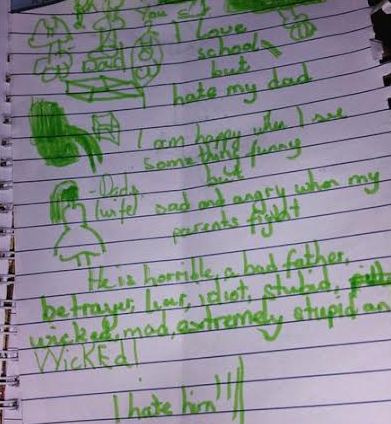 You
I love
school
Dad
but
hate my dad
I am happy when I see
something funny
but
Dad's
(wife)
sad and angry when my
parents fight
He is horrible, a bad father,
betrayer, liar, idiot, stubid,
wicked, mad, extremely stupid an
WicKEd!
I hate him!!!